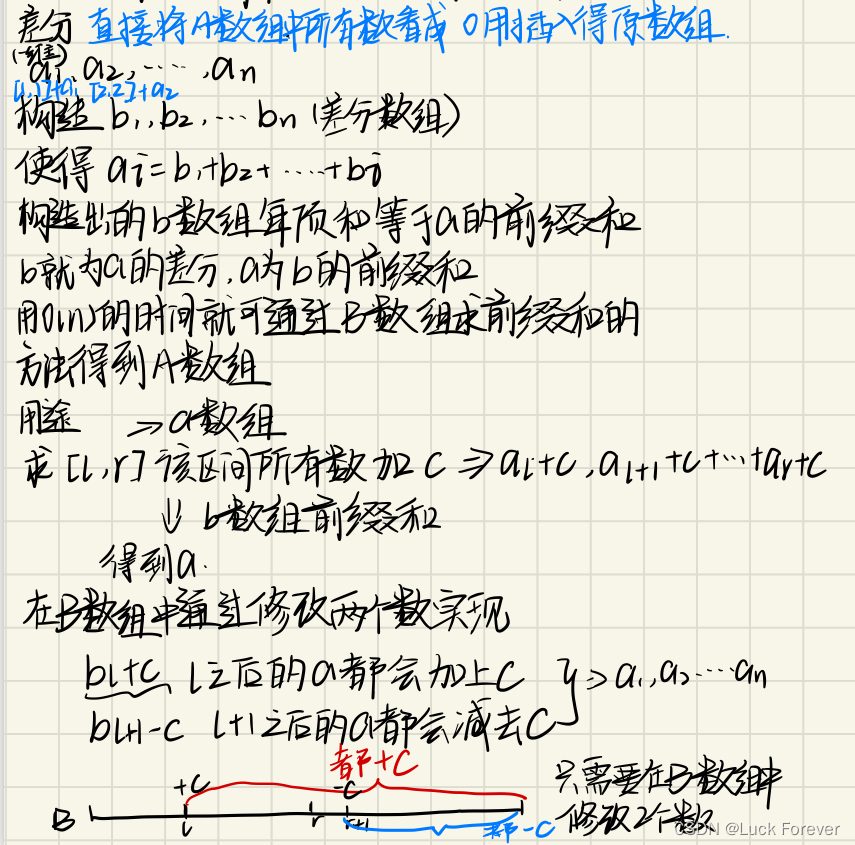 差分 直接将A数组中所有数看成 0用插入得原数组.
(一维)
a1,a2,……,an
[1,1]+a1 [2,2]+a2
构造 b1,b2,…bn (差分数组)
使得 ai=b1+b2+……+bi
构造出的b数组每项和等于a的前缀和
b就为a的差分,a为b的前缀和
用O(n)的时间就可通过B数组求前缀和的
方法得到A数组
用途 => a数组
求[l,r]该区间所有数加C => al+c,al+1+c+…+ar+c
⇓ b数组前缀和
得到a.
在B数组中通过修改两个数实现
bl+c l之后的a都会加上C } => a1,a2…an
bl+1-c l+1之后的a都会减去C
都+C
+C -C 只需要在B数组中
B l r r+1 都-C 修改2个数
CSDN @Luck Forever